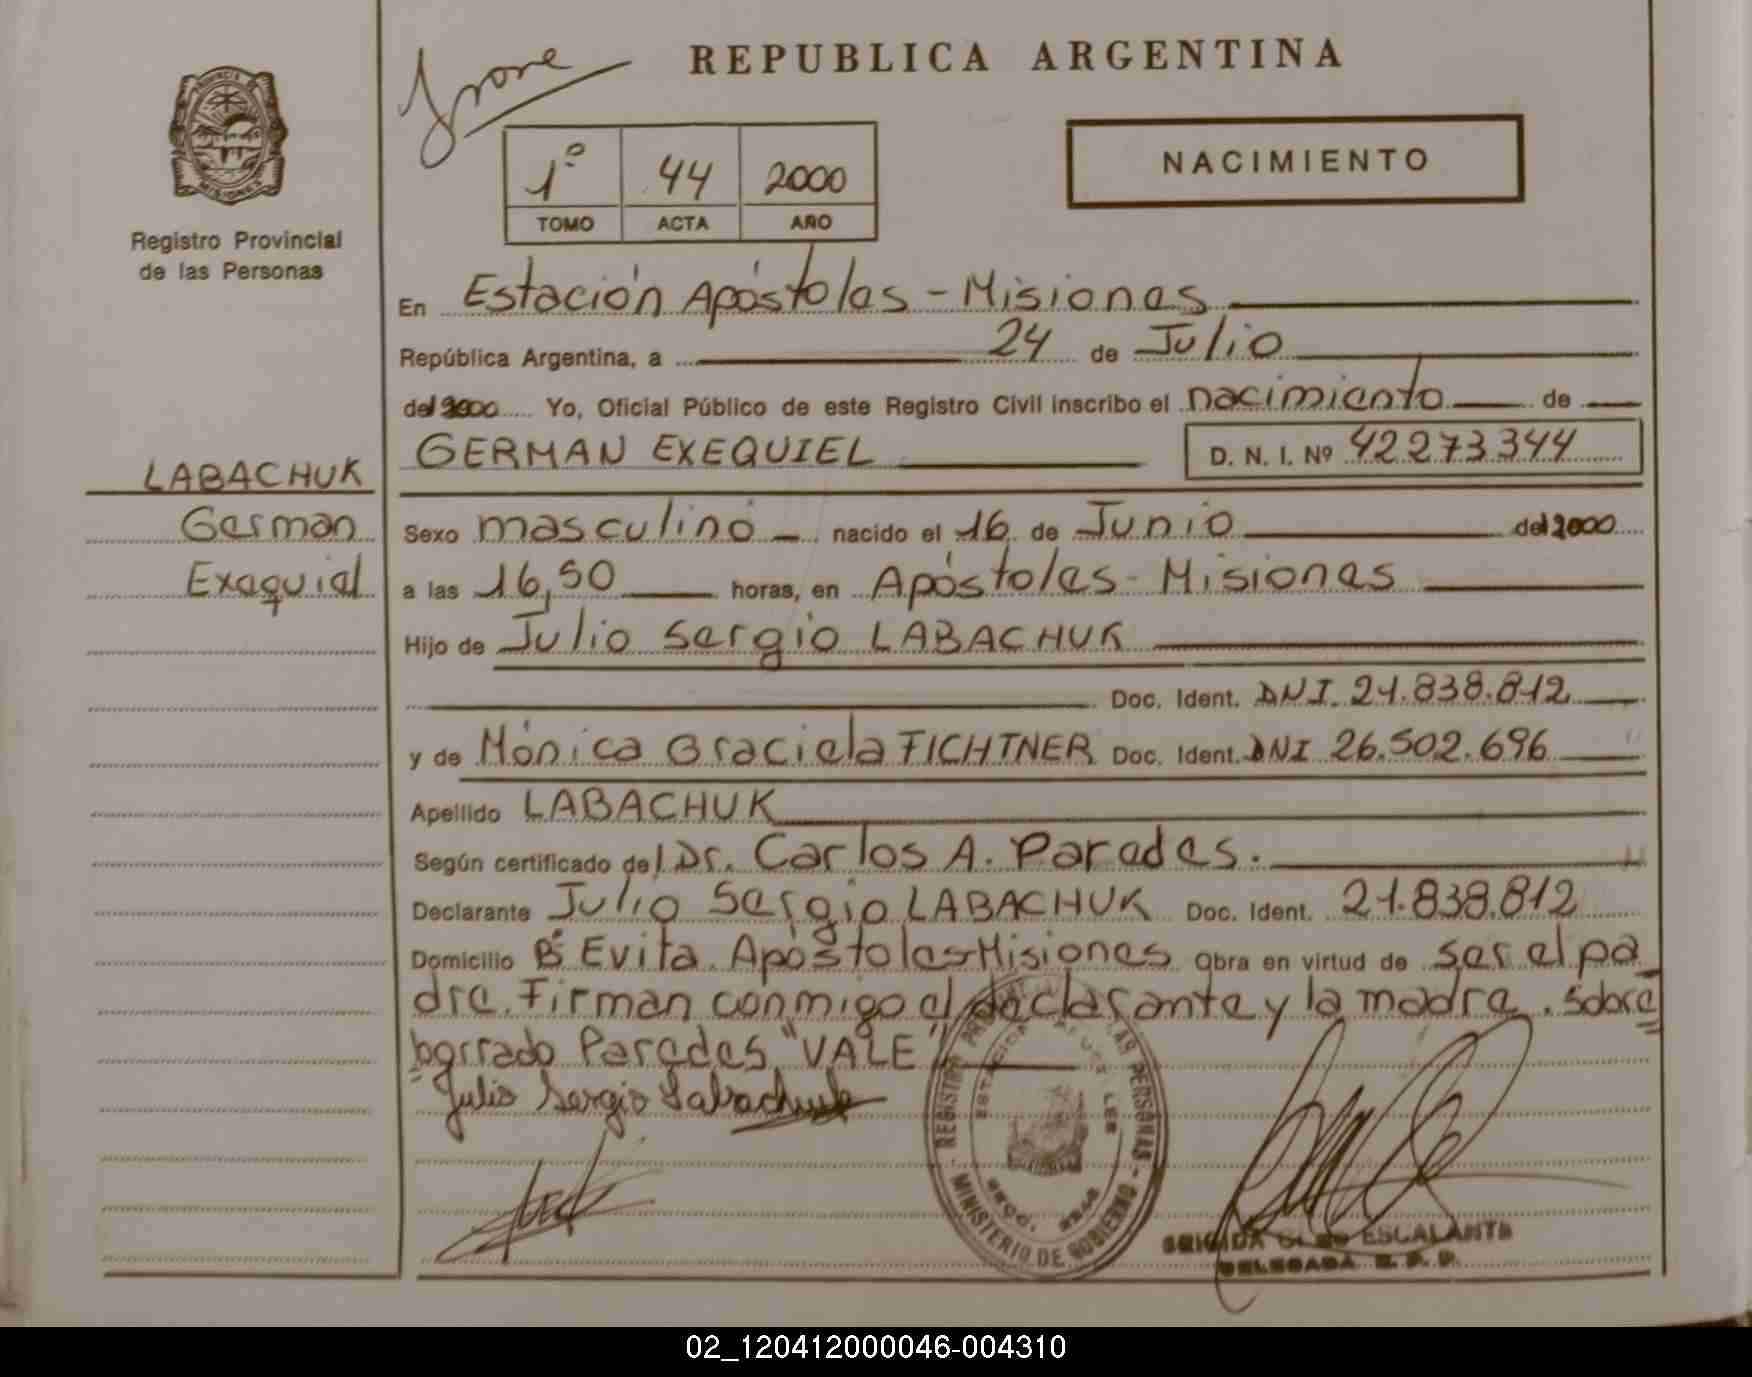 REPUBLICA ARGENTINA
PROVINCIA DE
MISIONES
Registro Provincial
de las Personas
1º 44 2000
TOMO ACTA AÑO
NACIMIENTO
En Estación Apóstoles - Misiones
República Argentina, a 24 de Julio
del 2000 Yo, Oficial Público de este Registro Civil inscribo el nacimiento de
GERMAN EXEQUIEL D. N. I. Nº 42273344
LABACHUK
German
Exequiel
Sexo masculino nacido el 16 de Junio del 2000
a las 16,50 horas, en Apóstoles - Misiones
Hijo de Julio Sergio LABACHUK
Doc. Ident. DNI. 21.838.812
y de Mónica Graciela FICHTNER Doc. Ident. DNI 26.502.696
Apellido LABACHUK
Según certificado del Dr. Carlos A. Paredes.
Declarante Julio Sergio LABACHUK Doc. Ident. 21.838.812
Domicilio Bº Evita. Apóstoles-Misiones Obra en virtud de ser el pa
dre. Firman conmigo el declarante y la madre. Sobre
borrado Paredes "VALE"
Julio Sergio Labachuk
REGISTRO PROVINCIAL DE LAS PERSONAS
MINISTERIO DE GOBIERNO
BRIGIDA ESCALANTE
DELEGADA R. P. P.
02_120412000046-004310